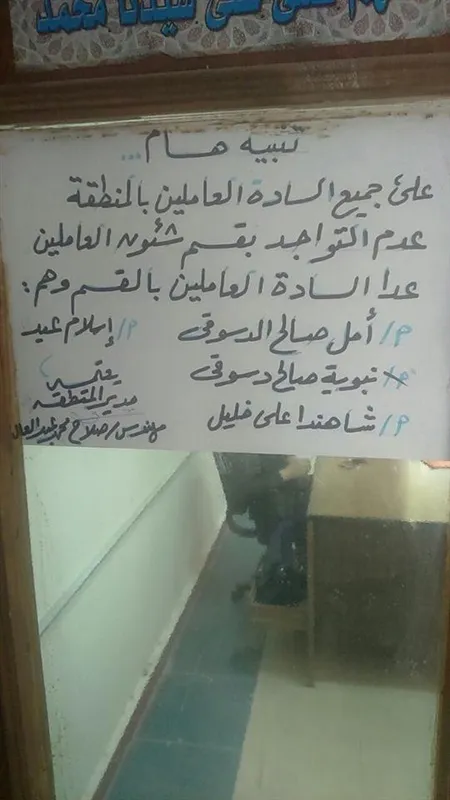 على سيدنا محمد
تنبيه هام...
على جميع السادة العاملين بالمنطقة
عدم التواجد بقسم شئون العاملين
عدا السادة العاملين بالقسم وهم:
م/ أمل صالح الدسوقى م/ إسلام عيد
م/ نبوية صالح دسوقى
م/ شاهندا على خليل
يعتمد
مدير المنطقة
مهندس/ صلاح محمد عبد العال